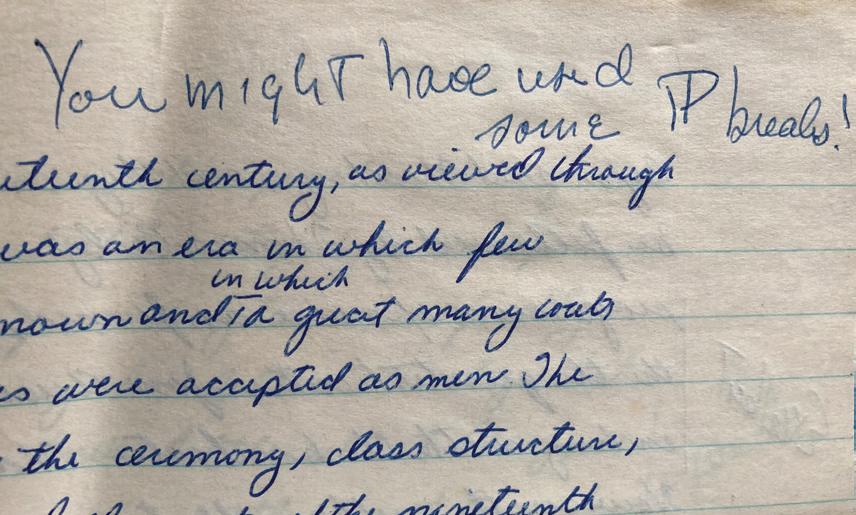 You might have used
some ¶ breaks!
eteenth century, as viewed through
was an era in which few
in which
nown and a great many coats
es were accepted as men. The
the ceremony, class structure,
the nineteenth